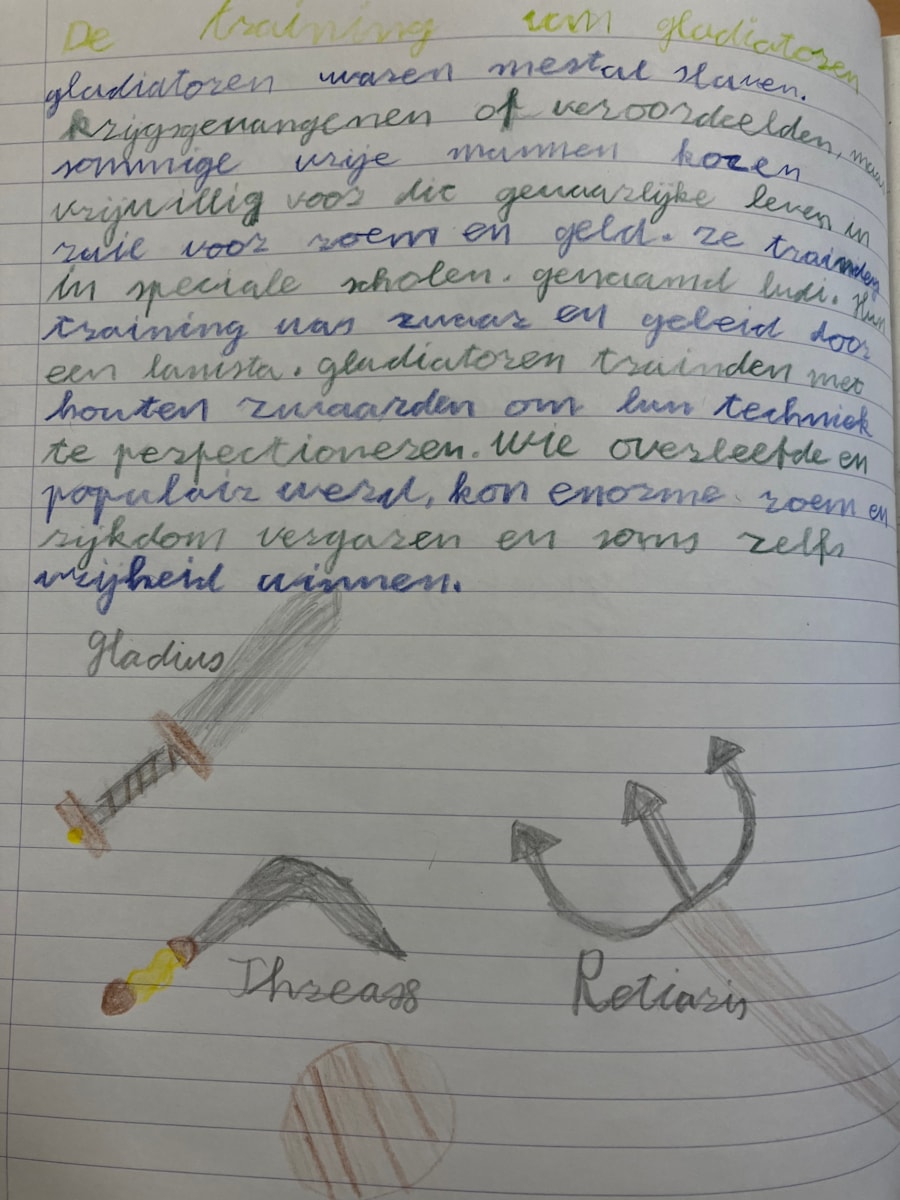 De training van gladiatoren
gladiatoren waren mestal slaven.
krijgsgevangenen of veroordeelden, maar
sommige vrije mannen kozen
vrijwillig voor dit gevaarlijke leven in
ruil voor roem en geld. ze trainden
in speciale scholen. genaamd ludi. Hun
training was zwaar en geleid door
een lanista. gladiatoren trainden met
houten zwaarden om hun techniek
te perfectioneren. Wie overleefde en
populair werd, kon enorme roem en
rijkdom vergaren en soms zelfs
vrijheid winnen.
gladius
Threaas
Retiaris